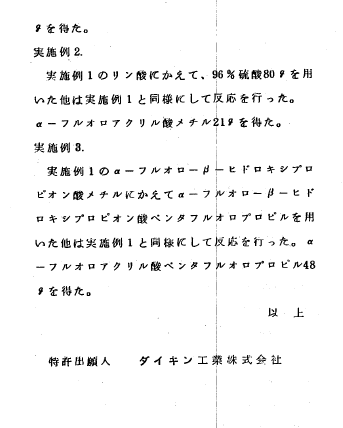 gを得た。
実施例2.
実施例1のリン酸にかえて、96%硫酸80gを用
いた他は実施例1と同様にして反応を行った。
α−フルオロアクリル酸メチル21gを得た。
実施例3.
実施例1のα−フルオロ−β−ヒドロキシプロ
ピオン酸メチルにかえてα−フルオロ−β−ヒド
ロキシプロピオン酸ペンタフルオロプロピルを用
いた他は実施例1と同様にして反応を行った。α
−フルオロアクリル酸ペンタフルオロプロピル48
gを得た。
以上
特許出願人 ダイキン工業株式会社